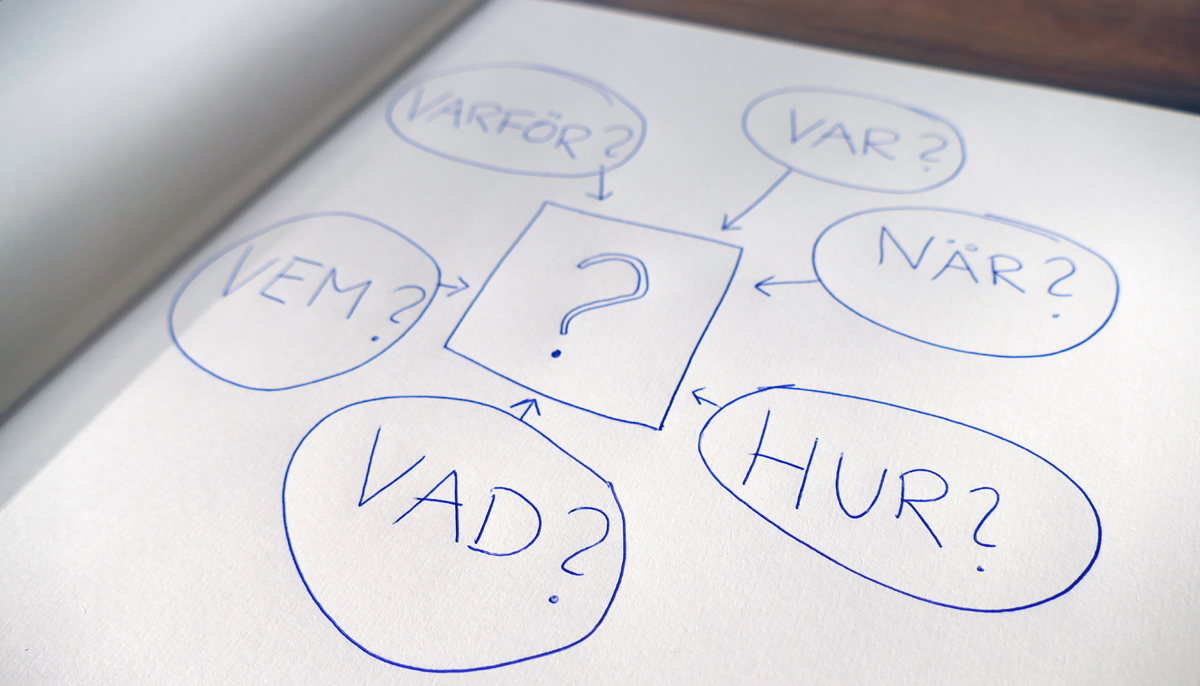 VARFÖR?
VAR?
VEM?
?
NÄR?
VAD?
HUR?